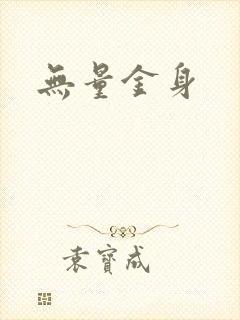 無量金身
袁寶成